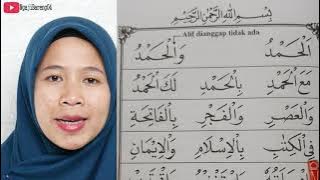 NgajiBareng04
بِسْمِ اللهِ الرَّحْمٰنِ الرَّحِيْمِ
Alif dianggap tidak ada
اَلْحَمْدُ وَالْحَمْدُ
مَعَ الْحَمْدِ بِالْحَمْدِ لَكَ الْحَمْدُ
وَالْعَصْرِ وَالْفَجْرِ بِالْفَاتِحَةِ
فِي الْكِتٰبِ بِالْاِسْلَامِ وَالْاِيْمَانِ